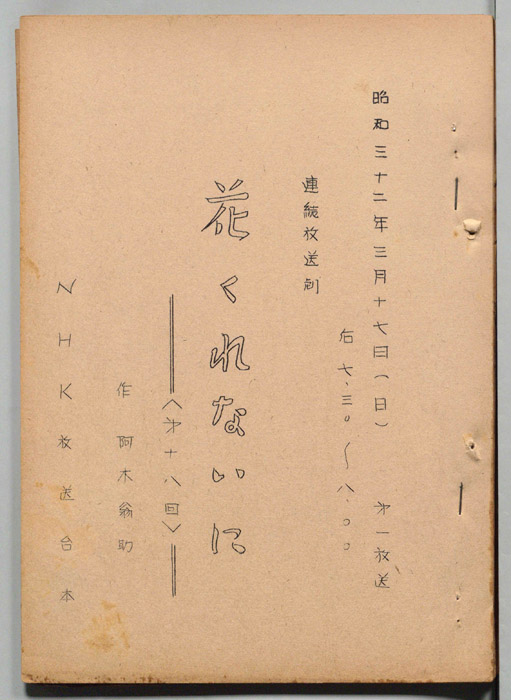 昭和三十二年三月十七日(日) 才一放送
后七、三〇〜八、〇〇
連続放送劇
花くれないに
<才十八回>
作 阿木翁助
NHK放送台本